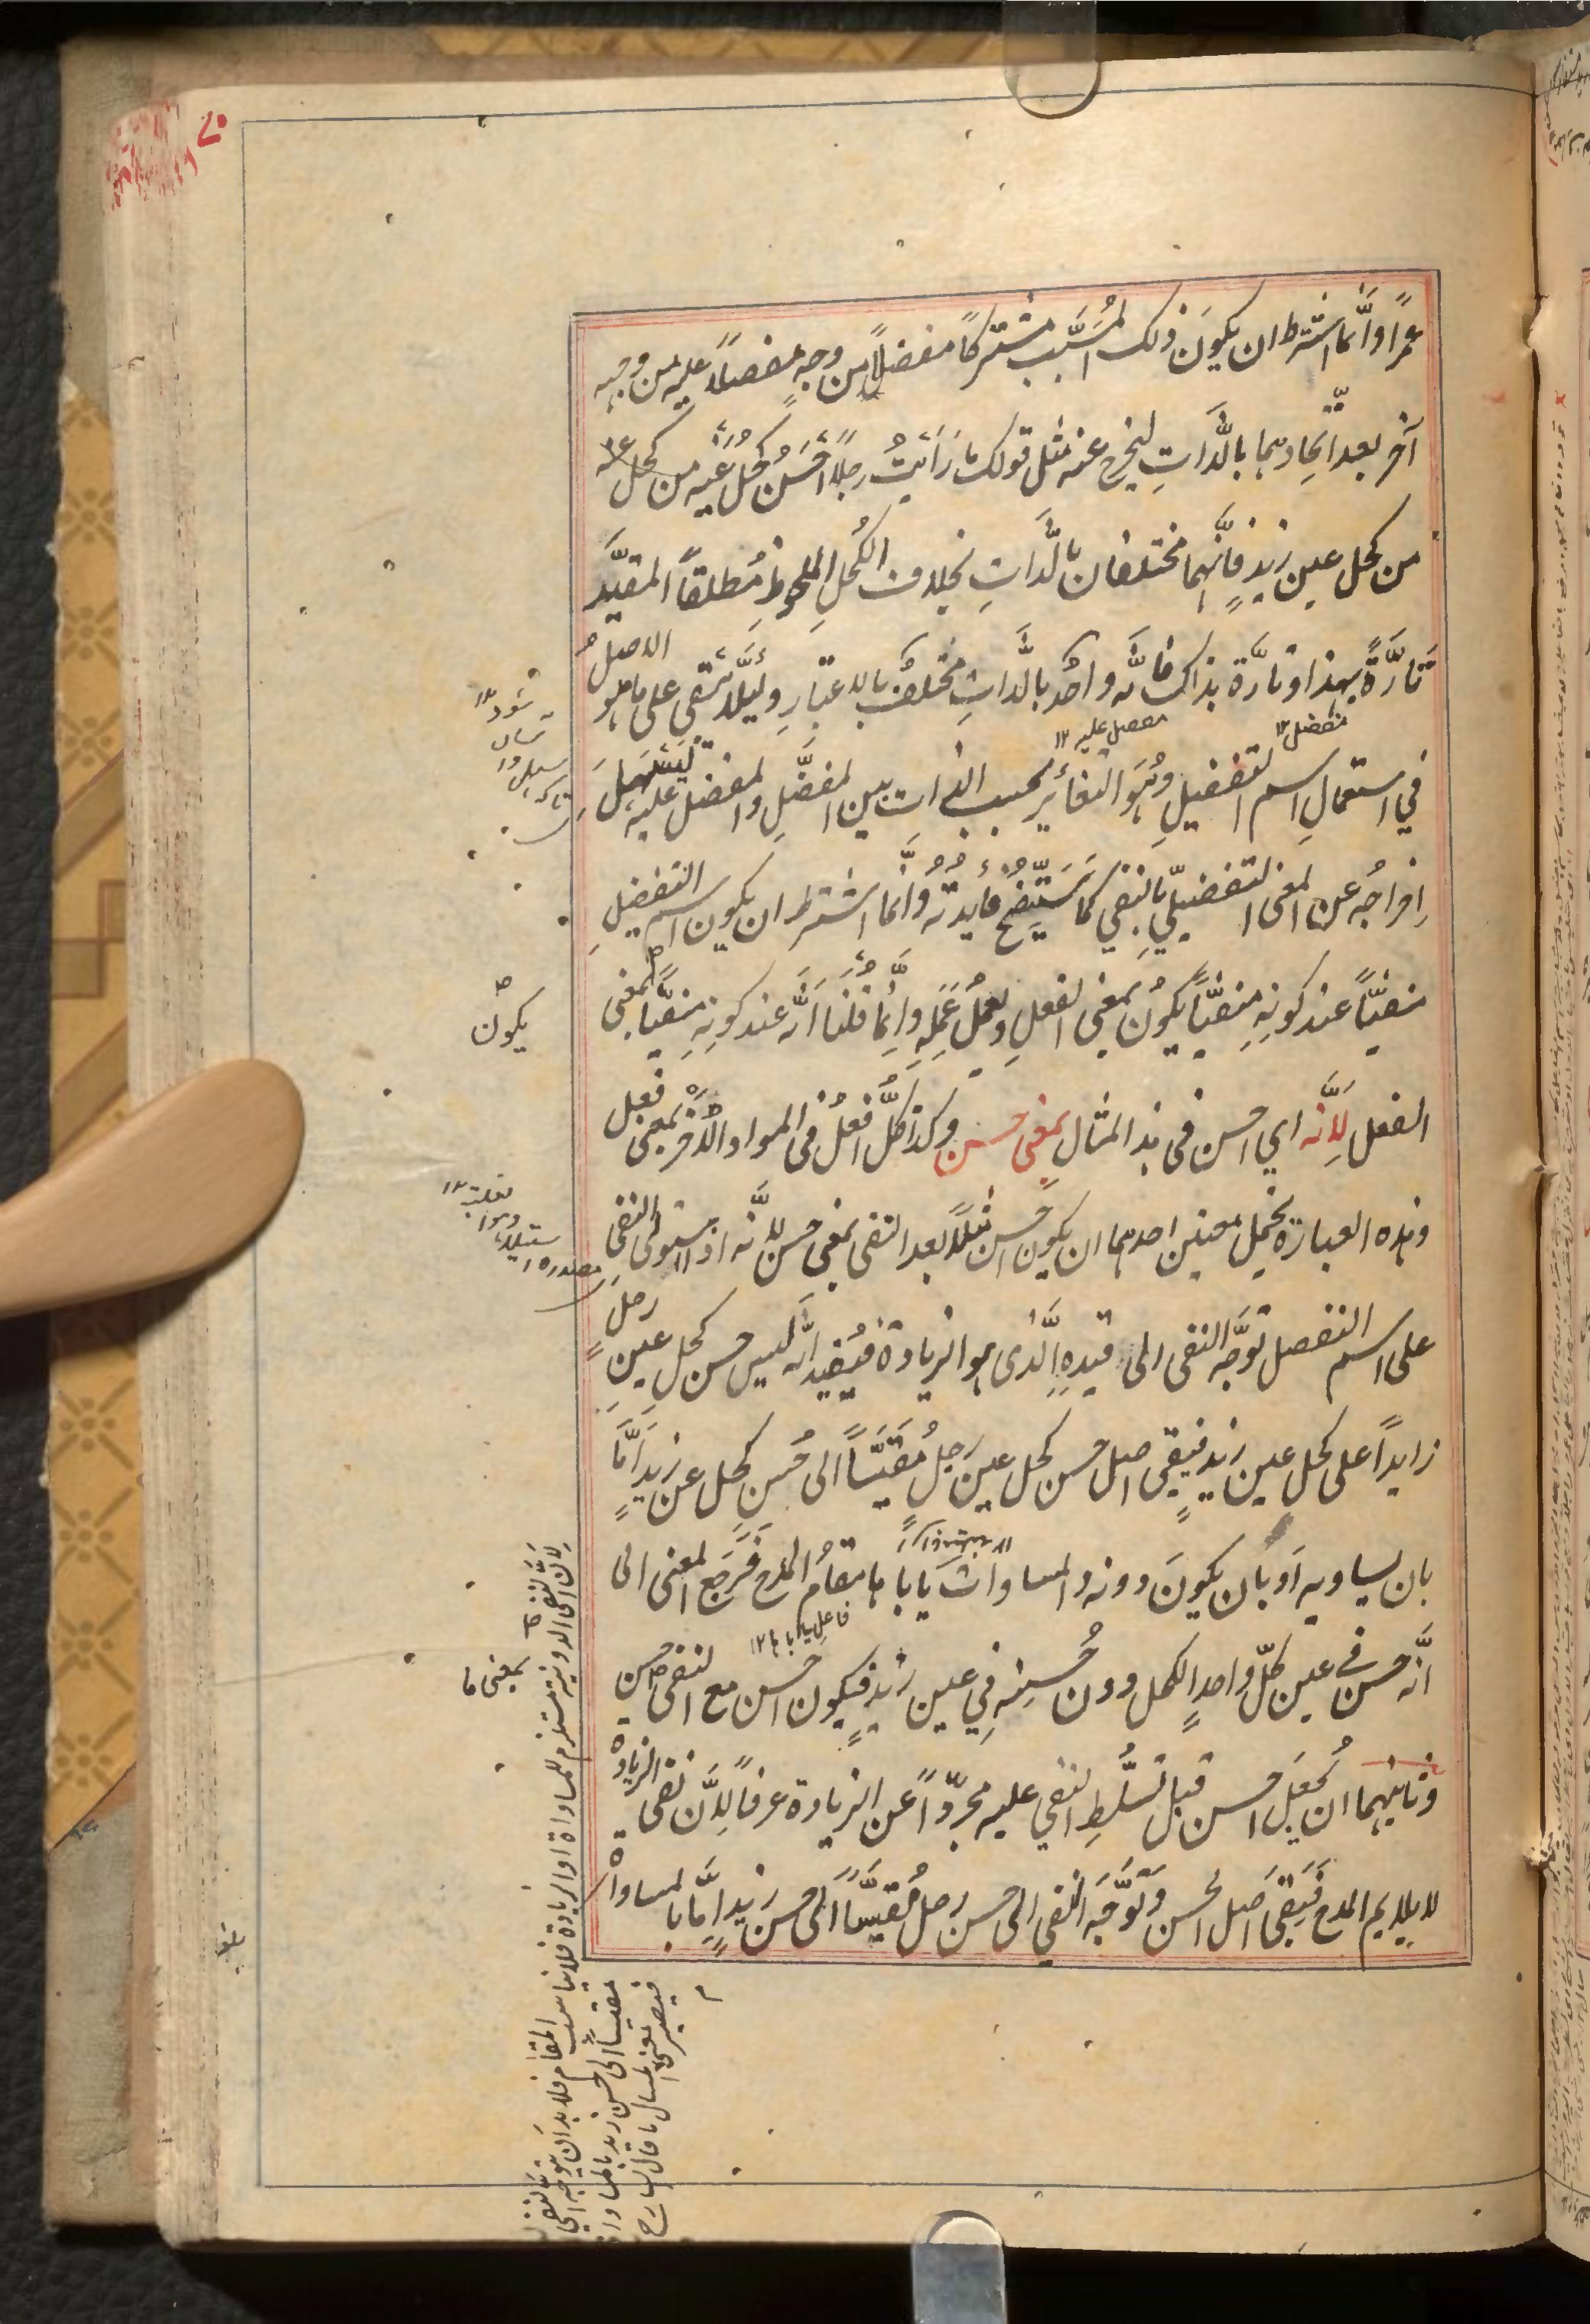 عمرًا وانَّما اشترط ان يكونَ ذلك المُسَبَّب مشتركًا مفضلًا من وجهٍ مفضلًا عليه من وجهٍ
آخر بعد اتّحادهما بالذَّاتِ ليخرج عنه مثل قولك ما رَاَيْتُ رجلًا احْسَنُ كحلُ عَيْنِه من كحل
من كحل عين زيدٍ فانَّهما مختلفان بالذَّاتِ بخلاف الكُحلِ الملحوظِ مُطلقاً المقيَّد
تارَّةً بهذا وتارَّة بذاك فانَّه واحد بالذَّاتِ مختلفٌ بالاعتبارِ ولئلَّا يبقى على ما هو الاصل
في استعمالِ اسم التفضيلِ وهُوَ التغائرُ بحسب الذات بين المفضَّلِ والمفضل عليه ليسهل
مفضل ١٢
مفضل عليه ١٢
اِخراجُه عن المعنى التفضيليِّ بالنفي كما سَيَتَّضِحُ فايدتُه وانَّما اشترط ان يكون اسم التفضيلِ
منفيًّا عند كونهِ منفيًّا يكُون بمعنى الفعلِ ويعملُ عَمَلِه وانَّما قُلْنَا اَنَّه عند كونِهِ منفيًّا بمعنى
يكون
الفعل لِاَنَّه اي احسن فى هذا المثال بمعْنى حسن وكذا كلُّ اَفعلُ فى المواد الاُخَر بمعنى فعل
وهذه العبارة يحتمل معنين احدهما ان يكون احسن مثلًا بعد النفى بمعنى حسن لاَنَّه اذا استولى النفى
على اسم التفصل توَجَّه النفى الى قيدهِ الَّذى هو الزيادة فيُفيد انَّه ليس حسن كحل عينِ رجل
زايدًا على كحل عين زيدٍ فيبقى اصل حسن كحل عين رجل مُقَيَّسًا الى حُسنِ كحل عين زيدٍ اَمَّا
بان يساويه اَو بان يكونَ دونه والمساوات يابا ها مقامُ المدح فَرَجَع المعنى الى
فاعل يابا ١٢
اَنَّه حسن فى عين كلّ واحدٍ الكحل دون حُسنِه فِي عين زيدٍ فيكون احسن مع النفى حسن
بمعنى ما
وثانيهما ان يُجعَلَ احسن قبل تسَلُّطِ النفي عليه مجرّدًا عن الزيادة عرفاً لِاَنَّ نفى الزيادة
لا يلايم المدح فَيَبْقىَ اصل الحسن وَتَوَجَّه النفي الى حسن رجل مُقيَّسًا الى حسن زيدٍ اِمّا بالمساواة
لِاَنَّ نفى الدونية مستلزم للمساواة او الزيادة فلا يناسب المقام فلا بد اَن يتوجه النفى
مقيسًا الى حسن زيد بالمساواة
فيصير معنى المسال ما قال الشارح